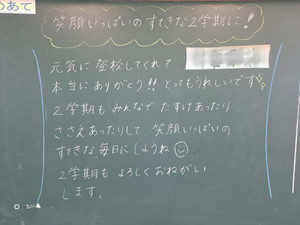 めあて
笑顔いっぱいの すてきな2学期に!!
元気に 登校してくれて
本当にありがう!! とってもうれしいです
2学期も みんなで たすけあったり
ささえあったりして 笑顔いっぱいの
すてきな毎日にしようね
2学期も よろしくおねがい
します。